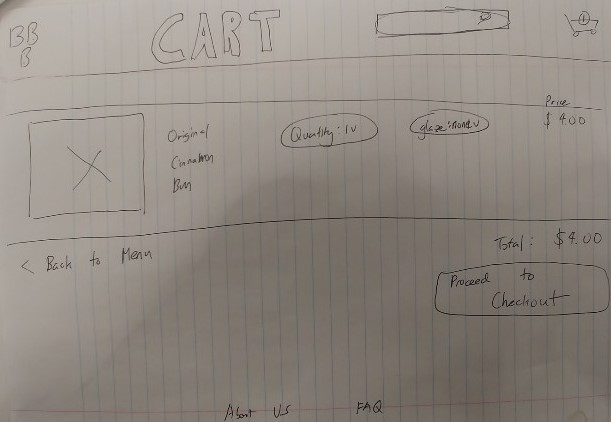 BB
B
CART
1
Price
Original
Cinnamon
Bun
Quantity: 1 v
glaze: none v
$ 4.00
Total: $4.00
< Back to Menu
Proceed to
Checkout
About Us FAQ